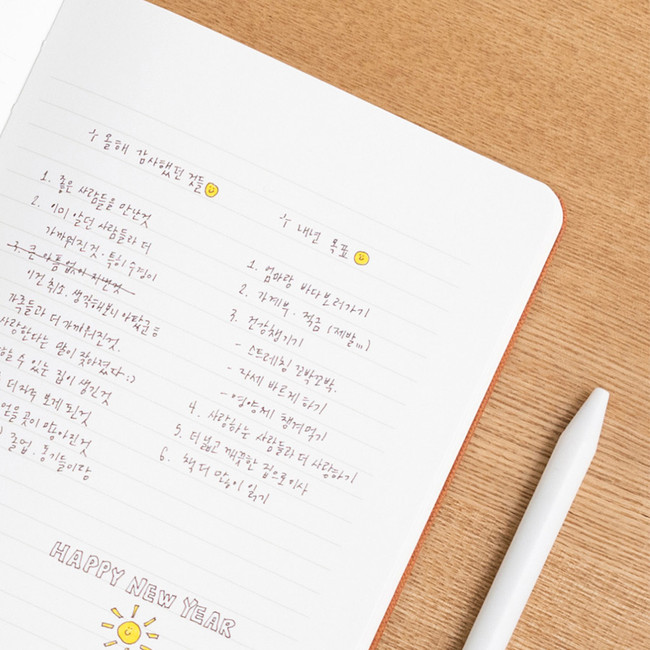 올해 감사했던 것들
1. 좋은 사람들을 만난것
2. 이미 알던 사람들과 더
가까워진것. 특히 수정이
3. 큰 아픔없이 지낸것
이건 취소. 생각해보니 아팠군
가족들과 더 가까워진것.
사랑한다는 말이 잦아졌다 :)
수 있는 집이 생긴것
더 자주 보게 된것
곳이 많아진것
졸업. 동기들이랑
내년 목표
1. 엄마랑 바다보러가기
2. 가계부. 적금 (제발!!!)
3. 건강챙기기
- 스트레칭 꼬박꼬박.
- 자세 바르게 하기
- 영양제 챙겨먹기
4. 사랑하는 사람들과 더 사랑하기
5. 더 넓고 깨끗한 집으로 이사
6. 책 더 많이 읽기
HAPPY NEW YEAR